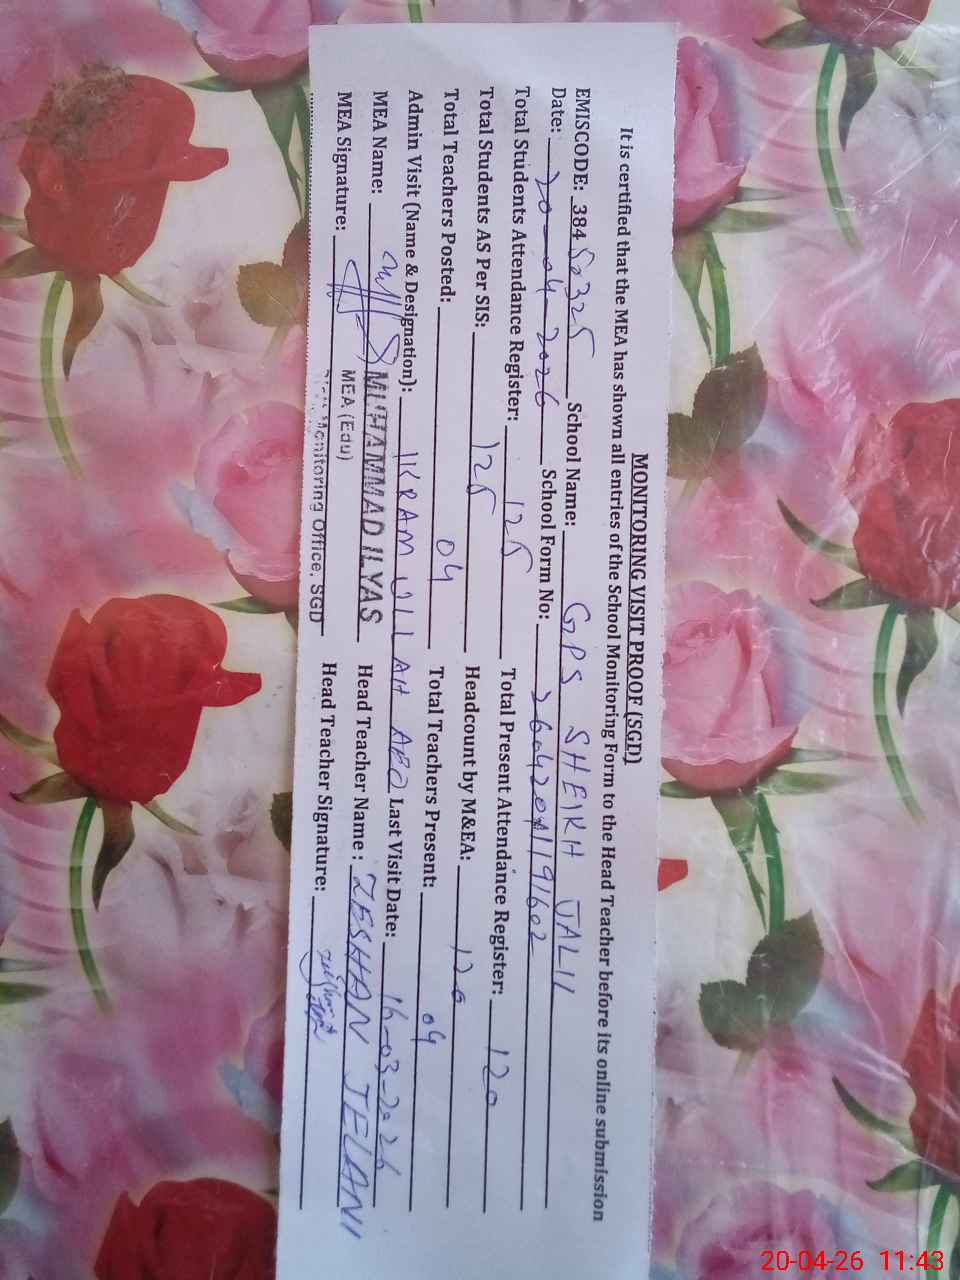 MONITORING VISIT PROOF (SGD)
It is certified that the MEA has shown all entries of the School Monitoring Form to the Head Teacher before its online submission
EMISCODE: 38450325 School Name: GPS SHEIKH JALII
Date: 20-04-2026 School Form No: 26042011191602
Total Students Attendance Register: 125 Total Present Attendance Register: 120
Total Students AS Per SIS: 125 Headcount by M&EA: 120
Total Teachers Posted: 04 Total Teachers Present: 04
Admin Visit (Name & Designation): IKRAM ULLAH AEO Last Visit Date: 16-03-2026
MEA Name: MUHAMMAD ILYAS Head Teacher Name: ZESHAN JELANI
MEA (Edu)
MEA Signature: Monitoring Office, SGD Head Teacher Signature:
20-04-26 11:43